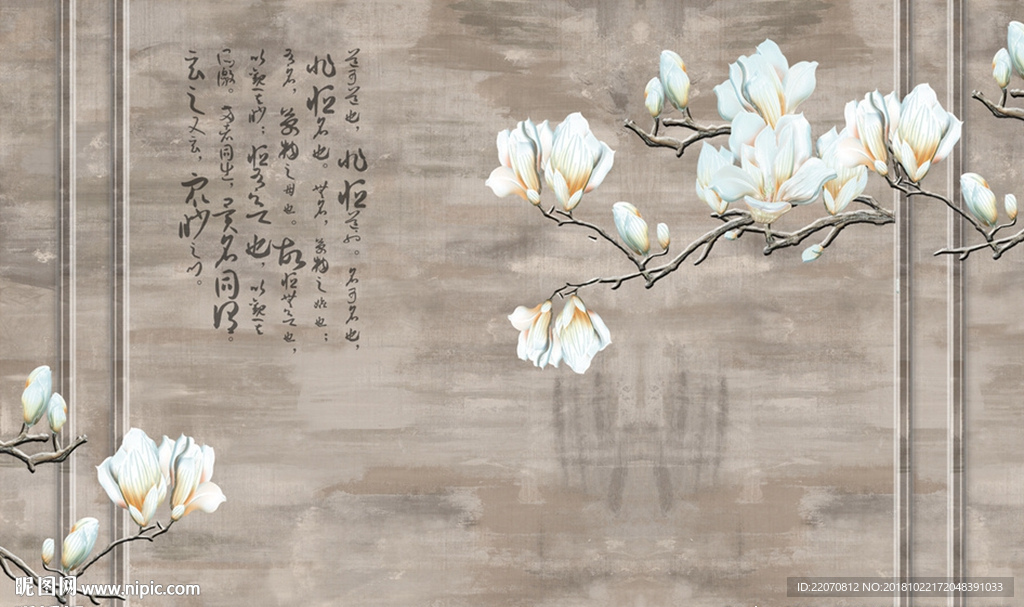 道可道也，非恒道也。名可名也，
非恒名也。無名，萬物之始也；
有名，萬物之母也。故恒無欲也，
以觀其眇；恒有欲也，以觀其
所徼。兩者同出，異名同謂。
玄之又玄，眾眇之門。
昵图网 www.nipic.com
ID:22070812 NO:20181022172048391033